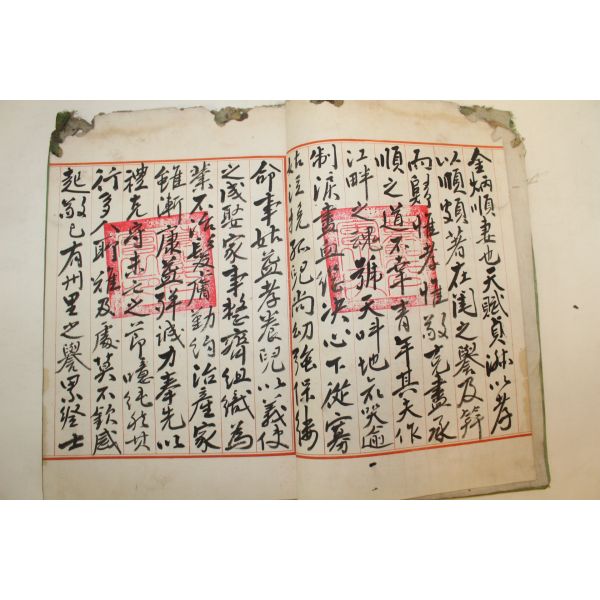 金炳順妻也天賦貞淑以孝
以順頗著在閨之譽及笄
而歸惟孝惟敬克盡承
順之道不幸青年其夫作
江畔之魂號天叫地哀毀逾
制淚盡血作決心下從家
姑泣挽孤兒尚幼強保
命事姑益孝養兒以義使
之成娶家事整齊組織為
業不治髮膚勤約治產家
雖漸康益殫誠力奉先以
禮克守未亡之節噫純然其
行多人所難及處莫不欽感
起敬已有州里之譽累經士